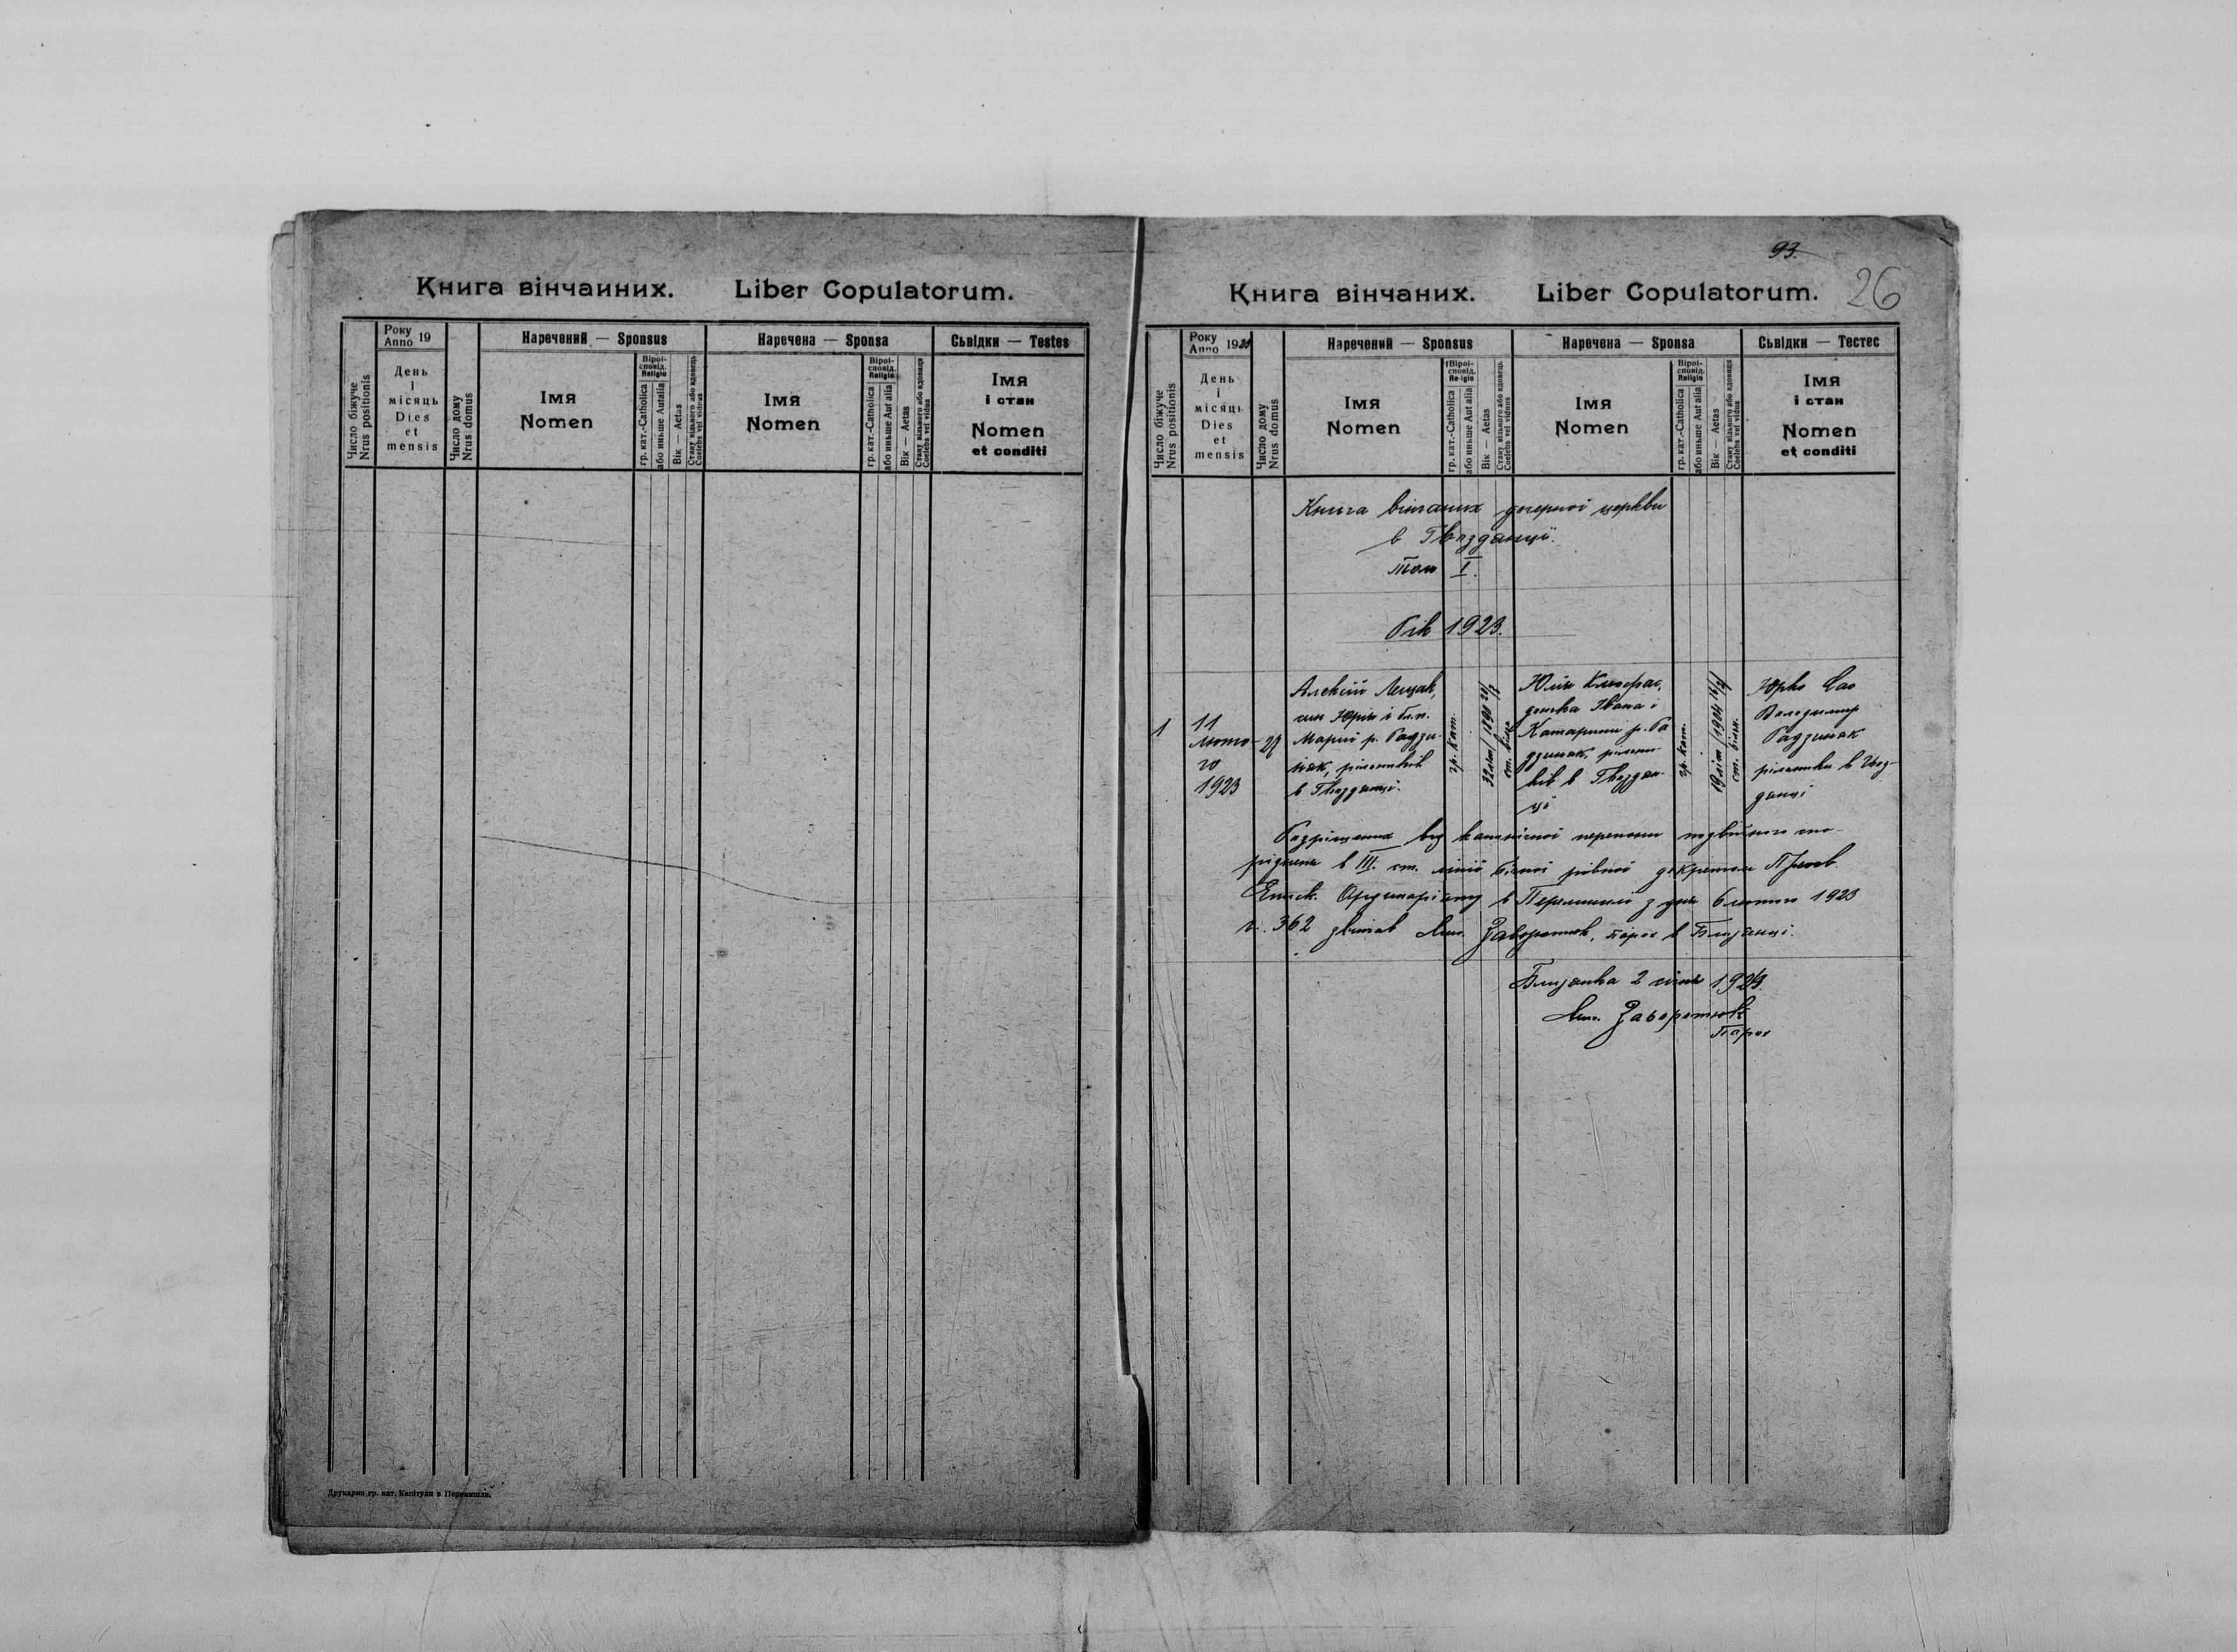 Книга вінчаиних. Liber Copulatorum.
Число біжуче
Nrus positionis
Року
Anno 19
День
і
місяць
Dies
et
mensis
Число дому
Nrus domus
Наречений — Sponsus
Імя
Nomen
Віроі-
сповід.
Religio
гр. кат.-Catholica
або иньше Autalia
Вік — Aetas
Стану вільного або вдовець
Coelebs vel viduus
Наречена — Sponsa
Імя
Nomen
Віроі-
сповід.
Religio
гр. кат.-Catholica
або иньше Aut alia
Вік — Aetas
Стану вільного або вдовиця
Coelebs vel vidua
Сьвідки — Testes
Імя
і стан
Nomen
et conditi
Друкарня гр. кат. Капітули в Перемишли.
93.
26
Книга вінчаних. Liber Copulatorum.
Число біжуче
Nrus positionis
Року
Anno 19
День
і
місяць
Dies
et
mensis
Число дому
Nrus domus
Наречений — Sponsus
Імя
Nomen
Віроі-
сповід.
Re igio
гр. кат.-Catholica
або иньше Aut alia
Вік — Aetas
Стану вільного або вдовець
Coelebs vel viduus
Наречена — Sponsa
Імя
Nomen
Віроі-
сповід.
Religio
гр. кат.-Catholica
або иньше Aut alia
Вік — Aetas
Стану вільного або вдовиця
Coelebs vel vidua
Сьвідки — Тестес
Імя
і стан
Nomen
et conditi
Книга вінчаних дочерної церкви
в Гвозданці.
Том I.
Рік 1923.
1
11
люто-
го
1923
27
Алексій Лещак,
син Юрія і бл.п.
Марії р. Радзи-
няк, рільників
в Гвозданці.
гр. кат.
32 літ 1890
ст. вільн.
Юлія
донька Івана і
Катарини р. Ра
дзиняк, рільни-
ків в Гвоздан-
ці
гр. кат.
19 літ 1904
ст. вільн.
Юрко
Володимир
Радзиняк
рільники в Гвоз-
данці
Розрішених від канонічної перепони подвійного спо-
ріднення в III. ст. лінії бічної рівної декретом Преосв.
Еписк. Ординаріяту в Перемишлі з дня 6 лютого 1923
ч. 362 звінчав Заворотюк, парох в Близянці.
Близянка 2 січня 1924.
Заворотюк
Парох